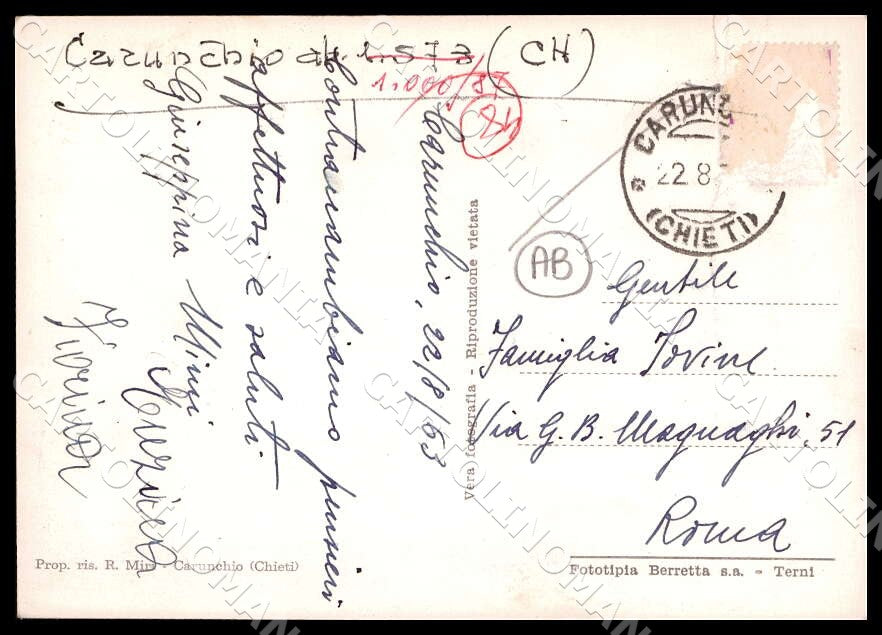 Carunchio (CH)
1.000/
Carunchio, 22/8/53
Contraccambiamo pensieri
affettuosi e saluti.
Giuseppina Mimì
CARUNC
22.8.
(CHIETI)
AB
Gentile
Famiglia Iovine
Via G. B. Magnaghi, 51
Roma
Vera fotografia - Riproduzione vietata
Prop. ris. R. Carunchio (Chieti)
Fototipia Berretta s.a. - Terni
CARTOLINOMANIA